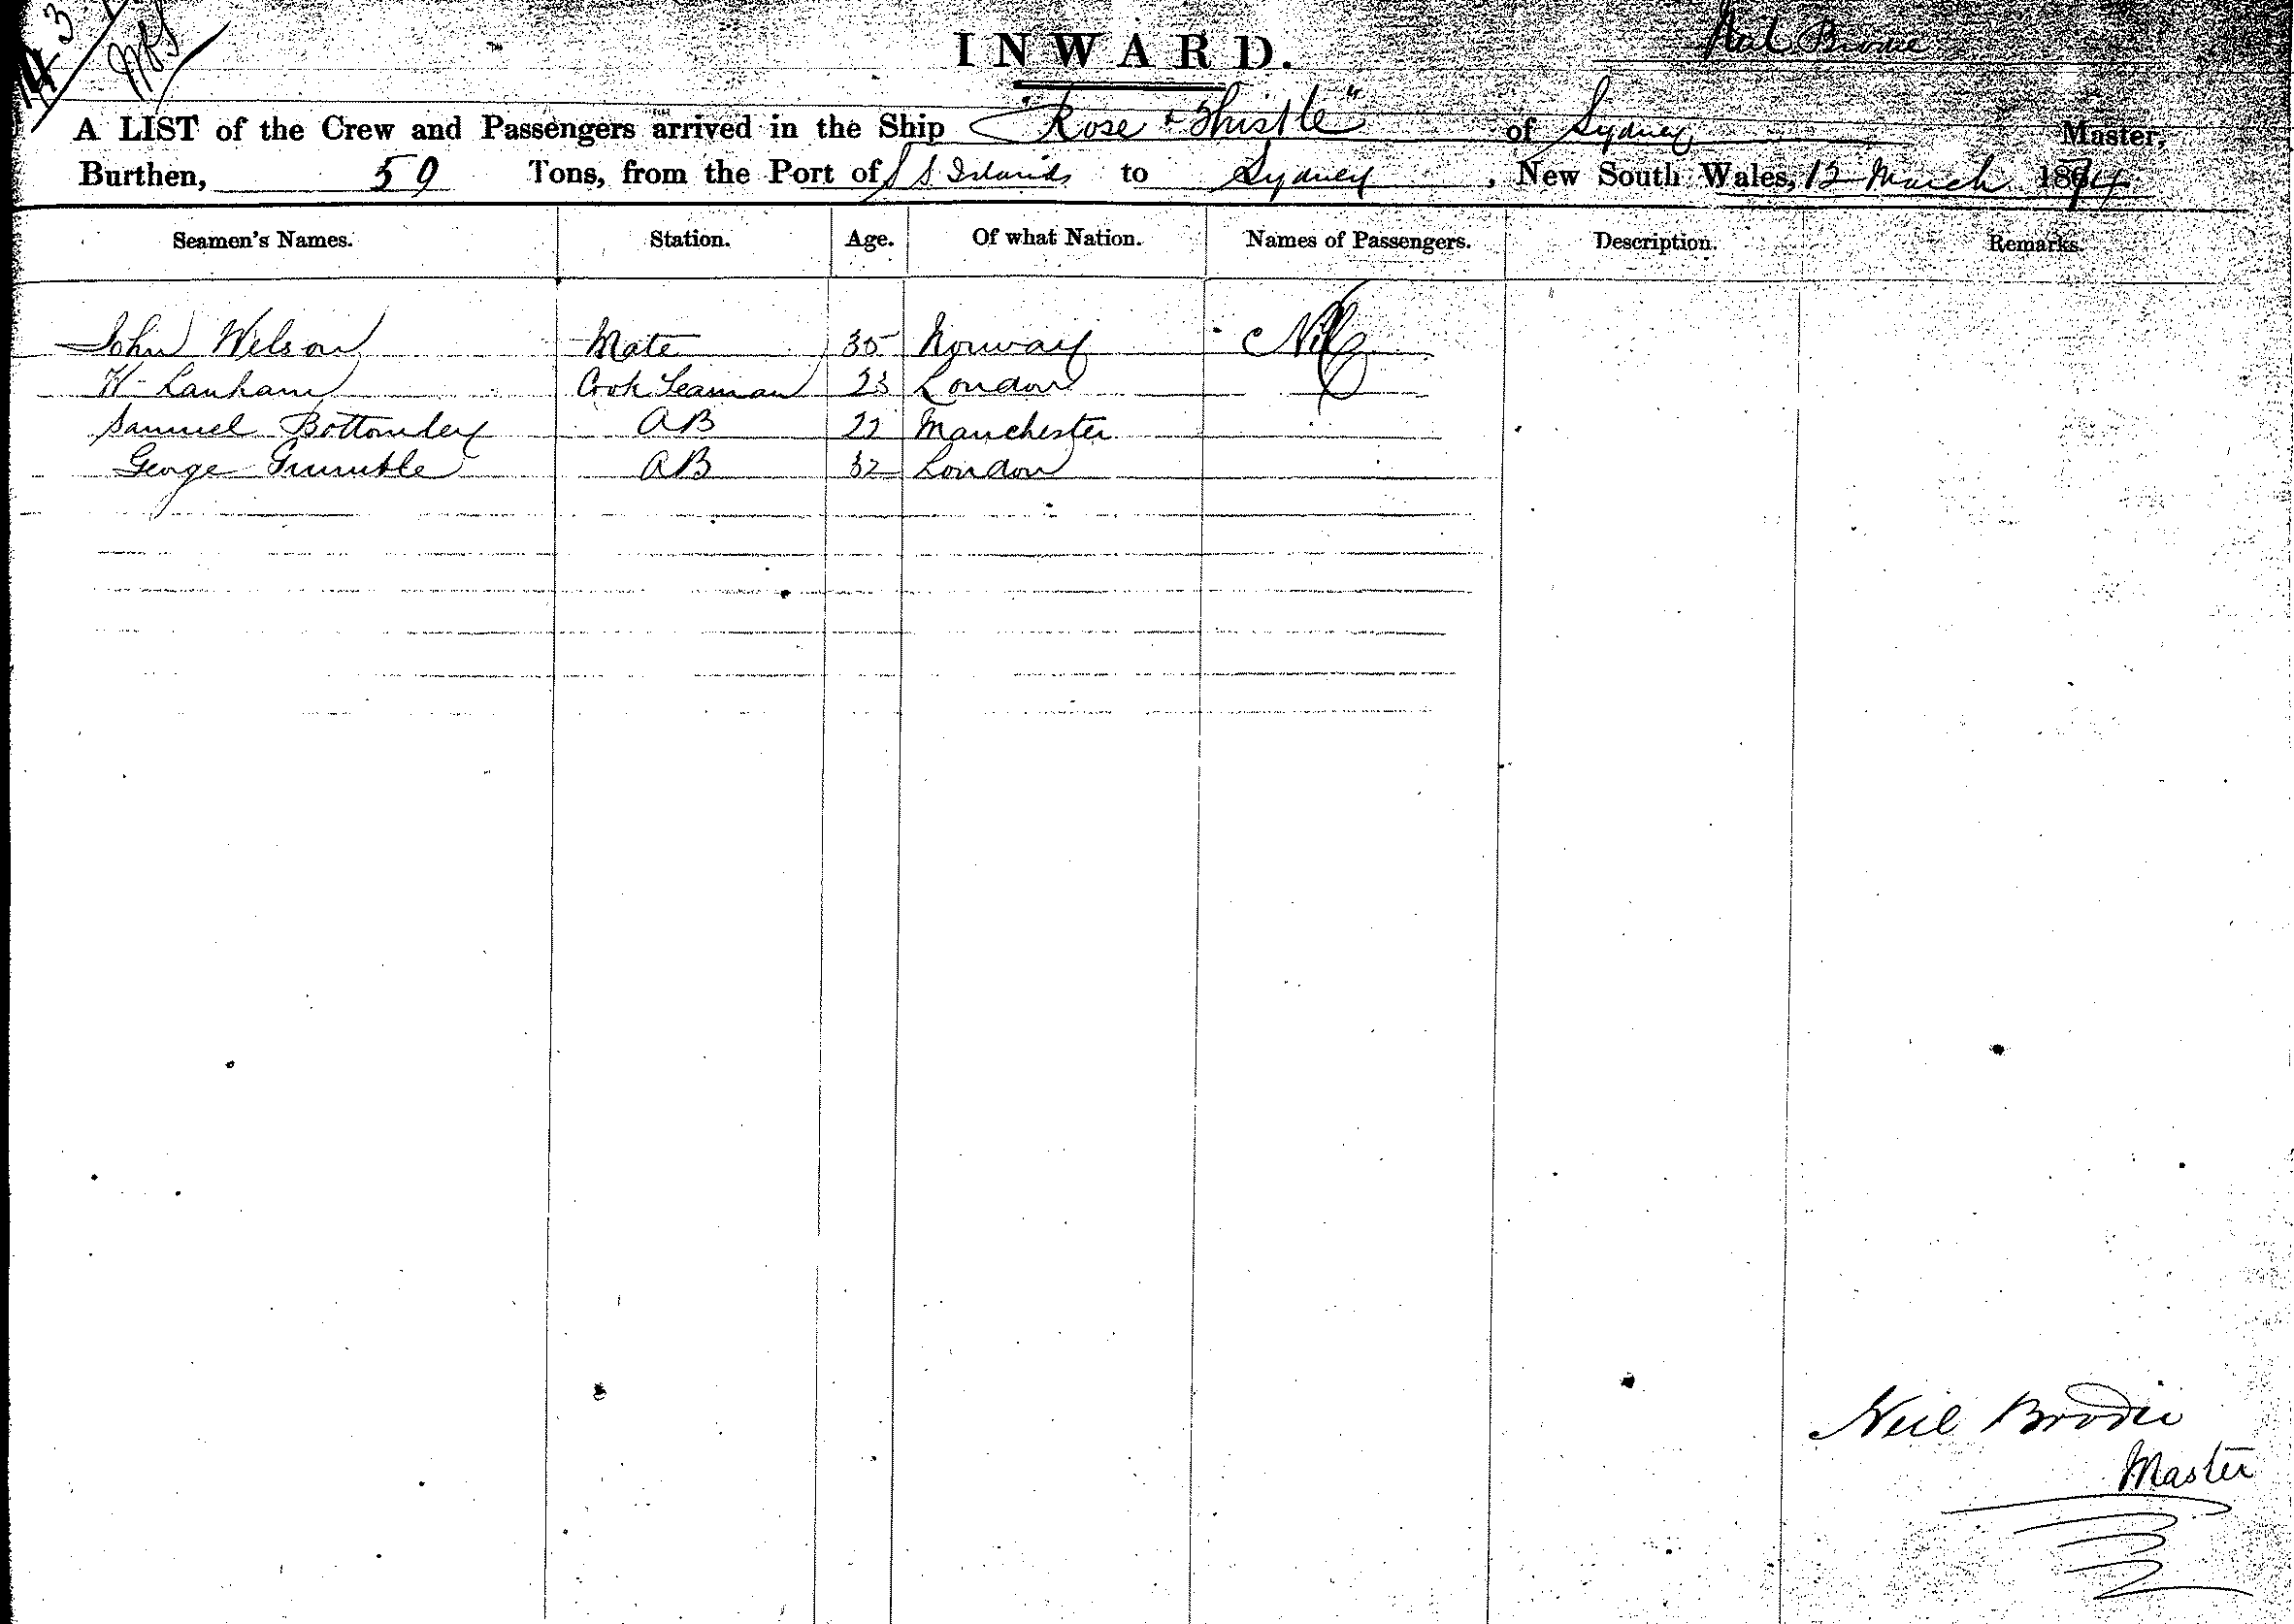 143
INWARD.
Neil Brodie
A LIST of the Crew and Passengers arrived in the Ship "Rose & Thistle" of Sydney Master,
Burthen, 59 Tons, from the Port of S S Islands to Sydney, New South Wales, 12 March 1874
Seamen's Names. Station. Age. Of what Nation. Names of Passengers. Description. Remarks.
John Wilson Mate 35 Norway Nil
W Lanham Cook Seaman 23 London
Samuel Bottomley AB 22 Manchester
George Trumble AB 32 London
Neil Brodie
Master